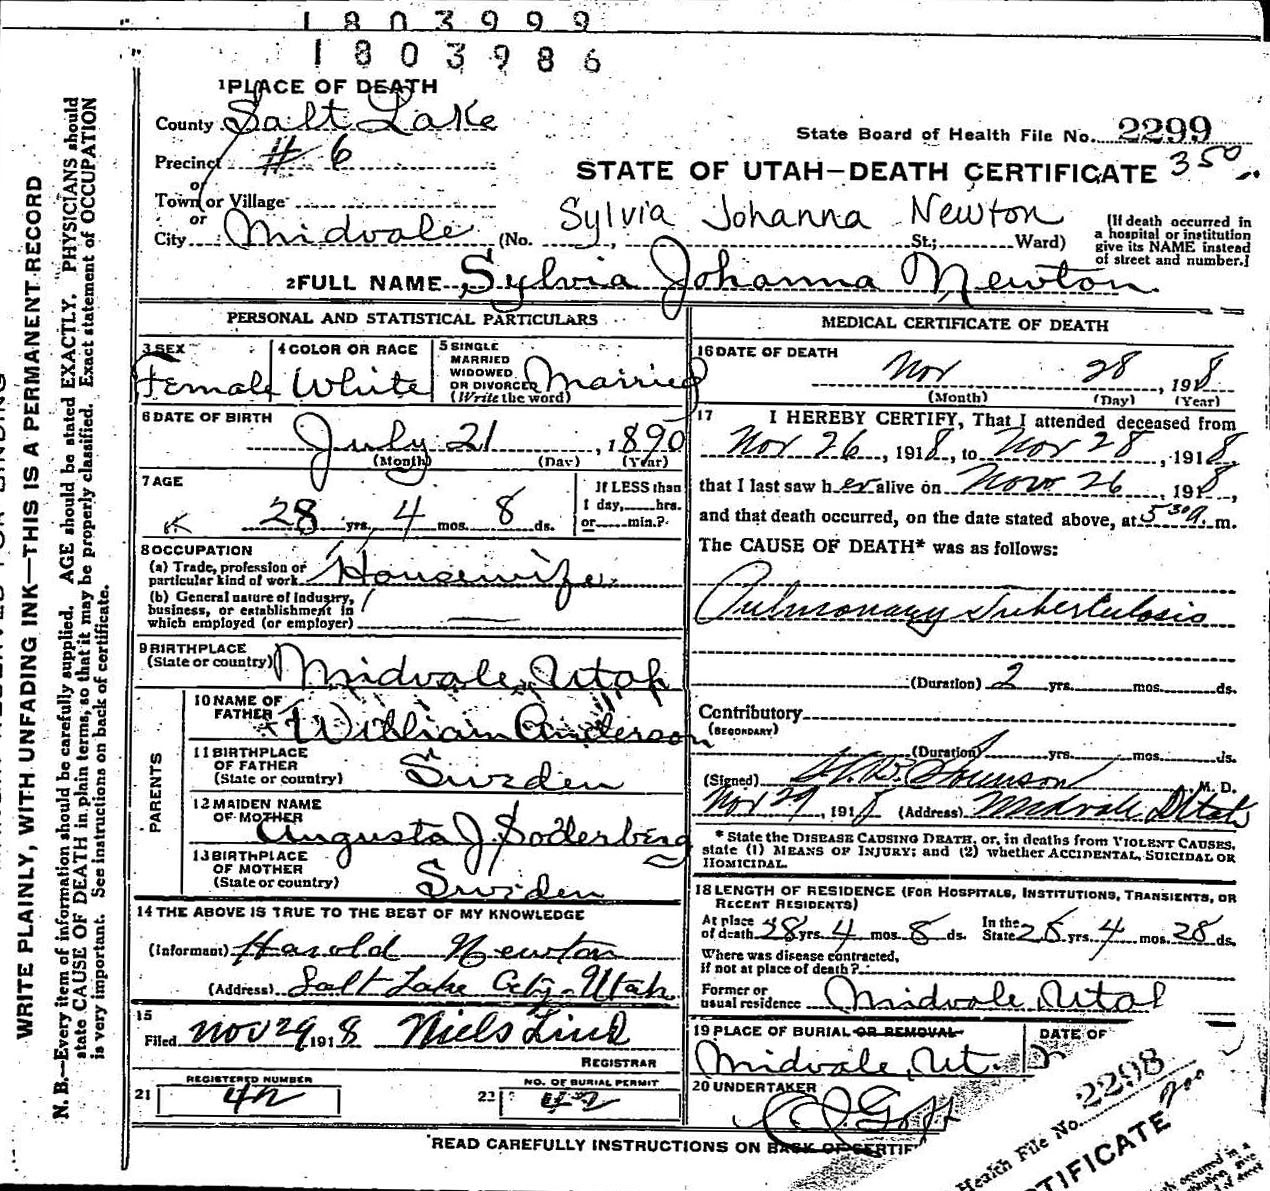 1 8 0 3 9 9 9
1 8 0 3 9 8 6
1 PLACE OF DEATH
County Salt Lake
Precinct # 6
or
Town or Village
or
City Midvale (No. St.; Ward)
State Board of Health File No. 2299
STATE OF UTAH—DEATH CERTIFICATE 350
Sylvia Johanna Newton
(If death occurred in
a hospital or institution
give its NAME instead
of street and number.)
2 FULL NAME Sylvia Johanna Newton
PERSONAL AND STATISTICAL PARTICULARS
3 SEX Female
4 COLOR OR RACE White
5 SINGLE
MARRIED
WIDOWED
OR DIVORCED Married
(Write the word)
6 DATE OF BIRTH
July 21, 1890
(Month) (Day) (Year)
7 AGE
28 yrs. 4 mos. 8 ds.
If LESS than
1 day, hrs.
or min.?
8 OCCUPATION
(a) Trade, profession or
particular kind of work Housewife
(b) General nature of Industry,
business, or establishment in
which employed (or employer)
9 BIRTHPLACE
(State or country) Midvale, Utah
PARENTS
10 NAME OF
FATHER William Anderson
11 BIRTHPLACE
OF FATHER
(State or country) Sweden
12 MAIDEN NAME
OF MOTHER Augusta J. Soderberg
13 BIRTHPLACE
OF MOTHER
(State or country) Sweden
14 THE ABOVE IS TRUE TO THE BEST OF MY KNOWLEDGE
(Informant) Harold Newton
(Address) Salt Lake City-Utah
15
Filed Nov 29 1918 Niels Lind
REGISTRAR
REGISTERED NUMBER
21 42
NO. OF BURIAL PERMIT
22 42
MEDICAL CERTIFICATE OF DEATH
16 DATE OF DEATH
Nov 28, 1918
(Month) (Day) (Year)
17 I HEREBY CERTIFY, That I attended deceased from
Nov 26, 1918, to Nov 28, 1918,
that I last saw her alive on Nov 26, 1918,
and that death occurred, on the date stated above, at 530a m.
The CAUSE OF DEATH* was as follows:
Pulmonary Tuberculosis
(Duration) 2 yrs. mos. ds.
Contributory
(SECONDARY)
(Duration) yrs. mos. ds.
(Signed) M. D.
Nov 29, 1918 (Address) Midvale Utah
* State the DISEASE CAUSING DEATH, or, in deaths from VIOLENT CAUSES,
state (1) MEANS OF INJURY; and (2) whether ACCIDENTAL, SUICIDAL OR
HOMICIDAL.
18 LENGTH OF RESIDENCE (FOR HOSPITALS, INSTITUTIONS, TRANSIENTS, OR
RECENT RESIDENTS)
At place
of death 28 yrs. 4 mos. 8 ds. In the
State 28 yrs. 4 mos. 28 ds.
Where was disease contracted,
if not at place of death?
Former or
usual residence Midvale, Utah
19 PLACE OF BURIAL OR REMOVAL
Midvale, Ut.
DATE OF
20 UNDERTAKER
READ CAREFULLY INSTRUCTIONS ON BACK OF CERTIF
Health File No. 2298
TIFICATE 200
occurred in a
WRITE PLAINLY, WITH UNFADING INK—THIS IS A PERMANENT RECORD
N. B.—Every item of information should be carefully supplied. AGE should be stated EXACTLY. PHYSICIANS should
state CAUSE OF DEATH in plain terms, so that it may be properly classified. Exact statement of OCCUPATION
is very important. See instructions on back of certificate.